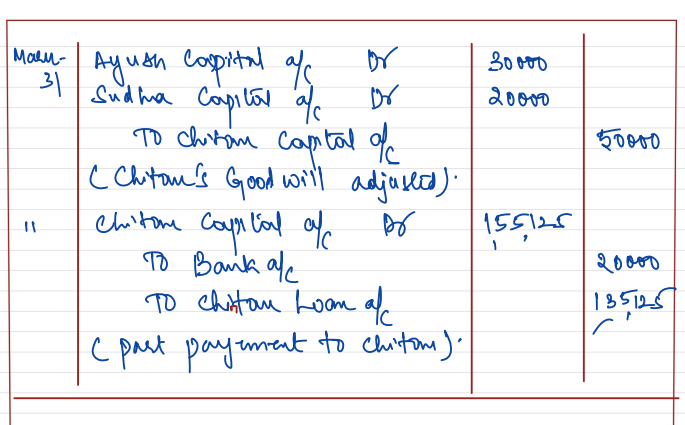 March Ayush Capital a/c Dr 30000
31 Sudha Capital a/c Dr 20000
To Chitan Capital a/c 50000
(Chitan's Goodwill adjusted).
" Chitan Capital a/c Dr 1,55,125
To Bank a/c 20000
To Chitan Loan a/c 1,35,125
(part payment to Chitan).